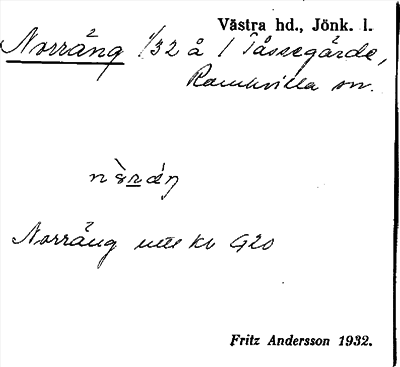 Västra hd., Jönk. l.
Norräng 1/32 å 1 Tåssegärde,
Ramkvilla sn.
Norräng utl kv G20
Fritz Andersson 1932.